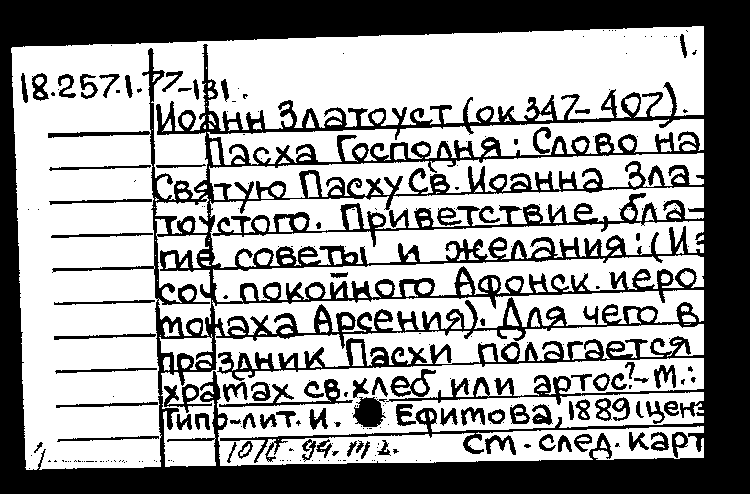 1.
18.257.1.77-131.
Иоанн Златоуст (ок 347-407).
Пасха Господня: Слово на
Святую Пасху Св. Иоанна Зла-
тоустого. Приветствие, бла-
гие советы и желания: (Из
соч. покойного Афонск. иеро
монаха Арсения). Для чего в
праздник Пасхи полагается
храмах св. хлеб, или артос?- М.:
Типо-лит. И. Ефимова, 1889 (ценз
См. след. карт